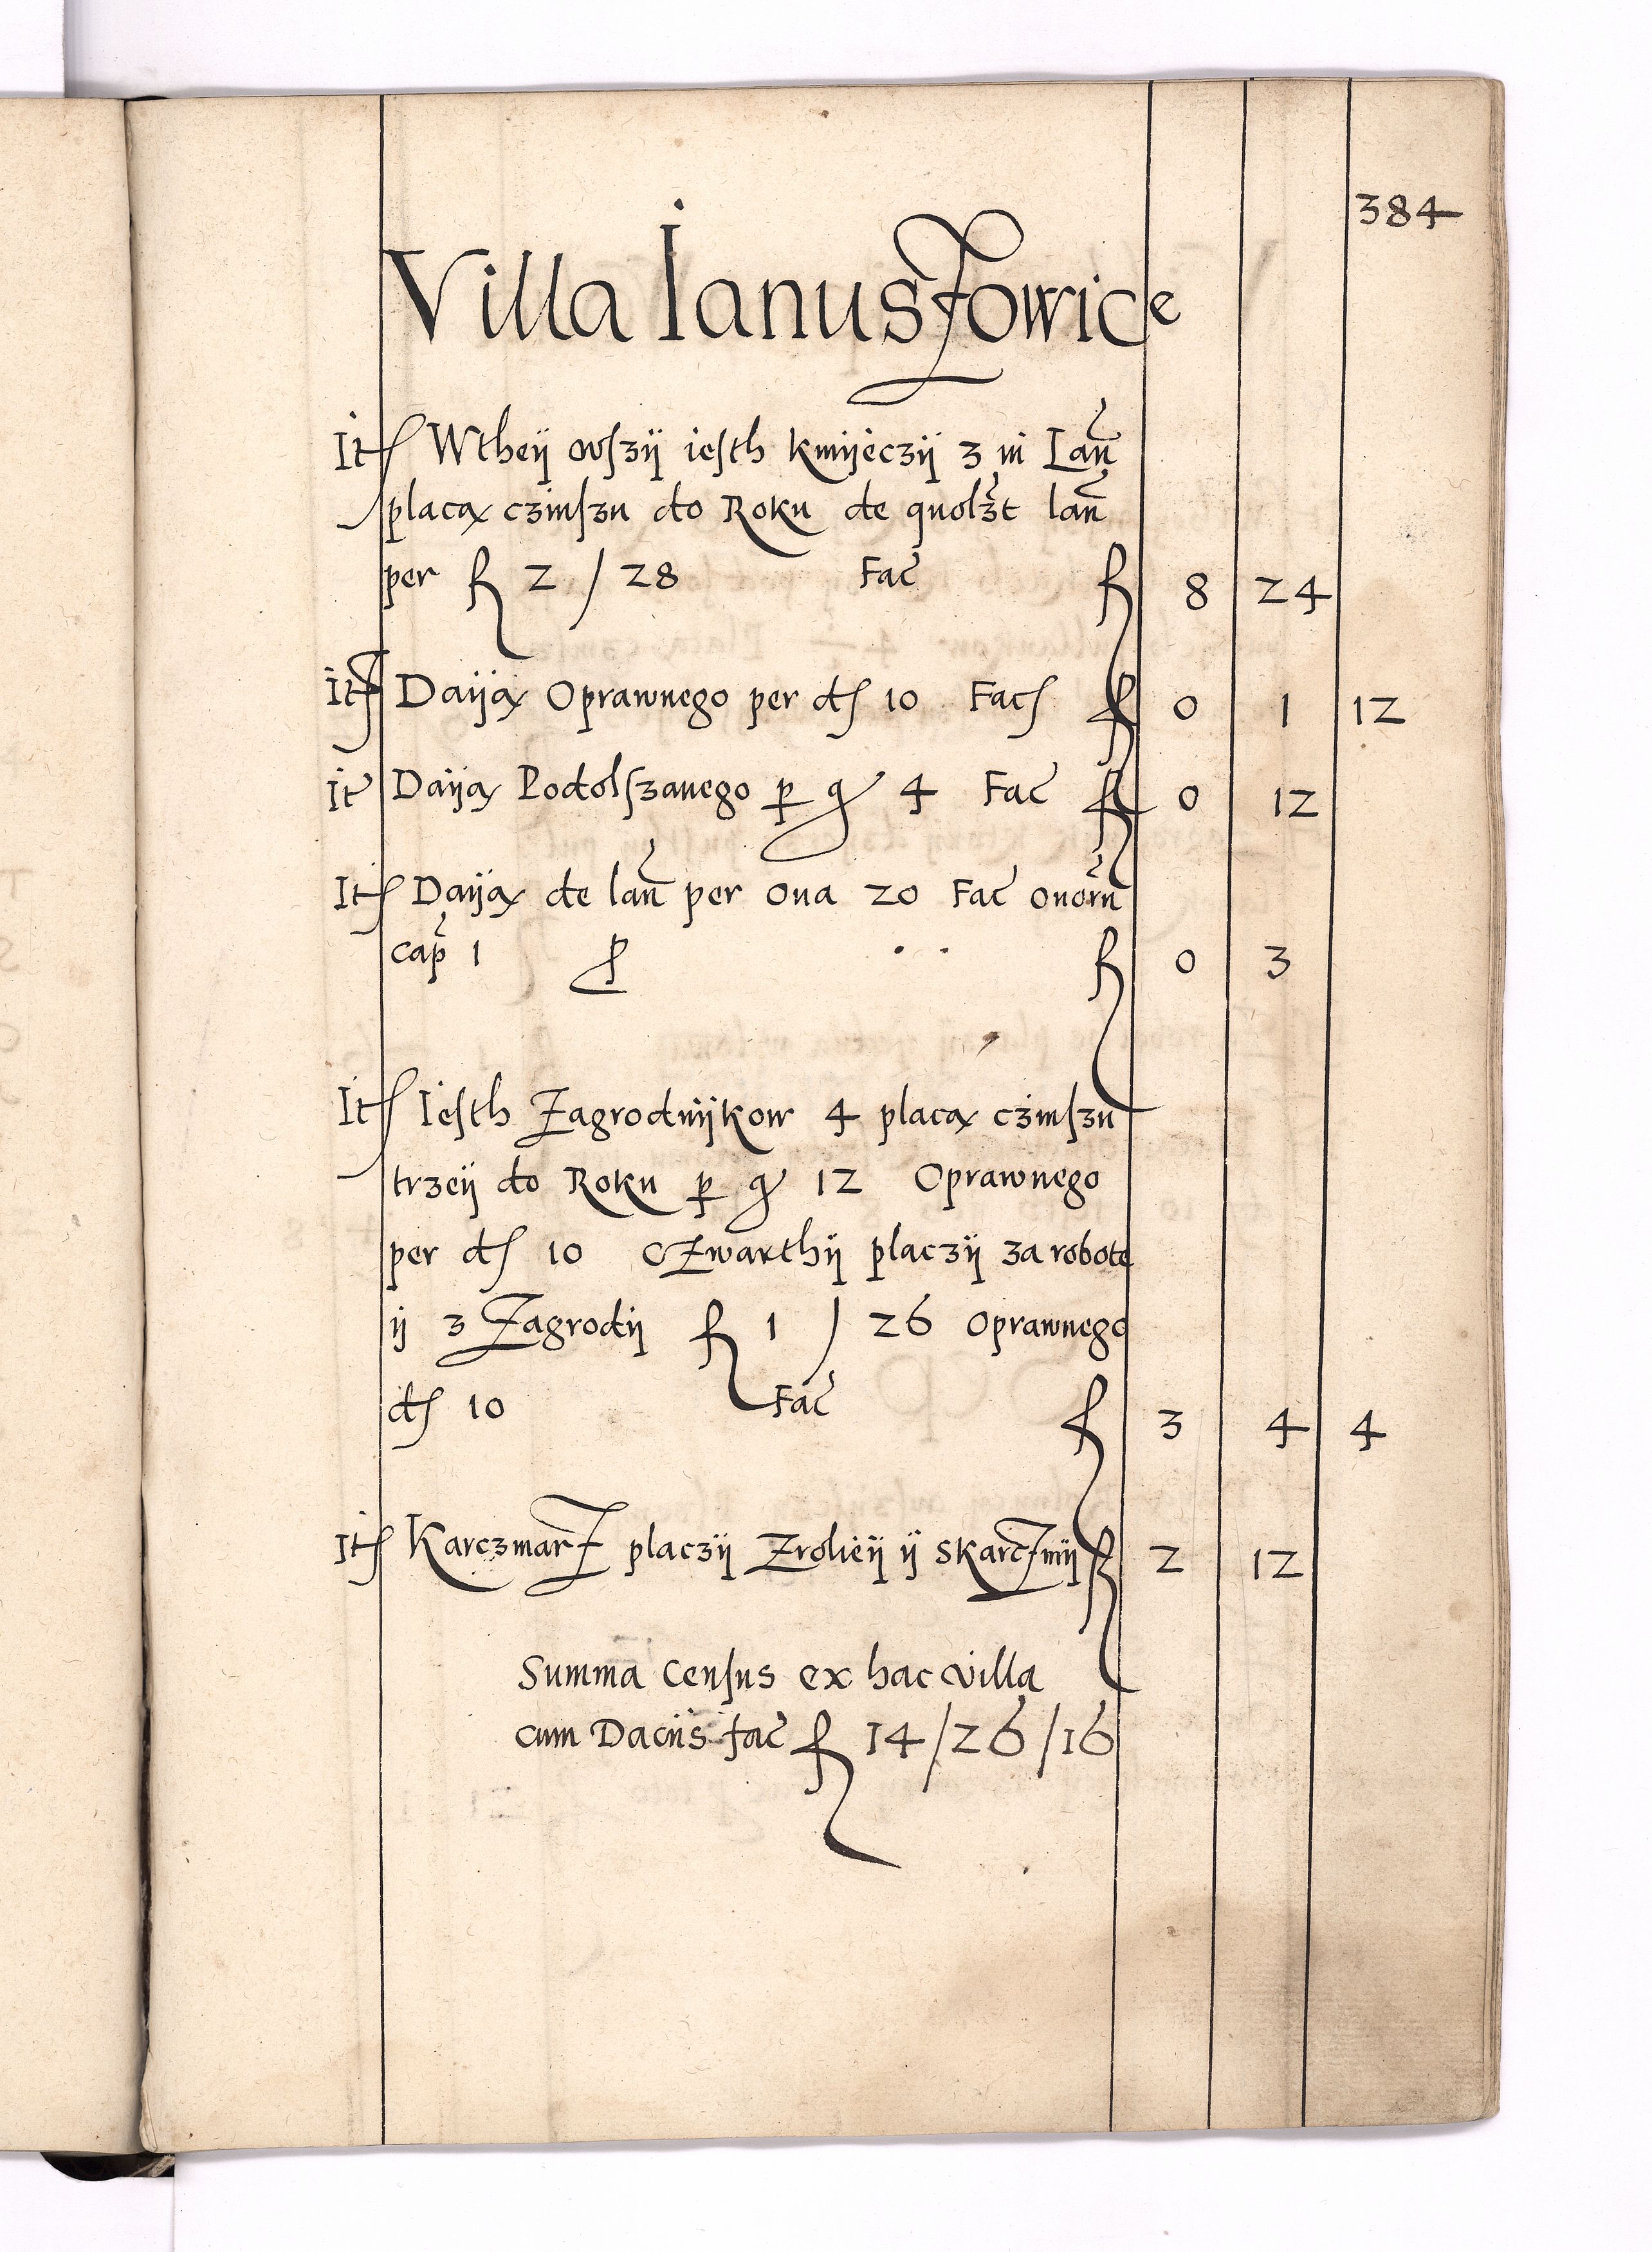 384
Villa Ianuszowice
Itꝭ Wtheÿ wſzÿ ieſth kmÿeczÿ 3 in Lan̄
placą czinſzu do Roku de quolꝫt lan̄
per fl 2 / 28 Fac̄ fl 8 24
Itꝭ Daÿą Oprawnego per dꝭ 10 Facꝭ fl 0 1 12
It̄ Daÿą Podolſzanego ꝑ gͬ 4 Fac̄ fl 0 12
Itꝭ Daÿą de lan̄ per oua 20 Fac̄ ouor̄u
cap̄ 1 ꝓ fl 0 3
Itꝭ Ieſth Zagrodnÿkow 4 placą czinſzu
trzeÿ do Roku ꝑ gͬ 12 Oprawnego
per dꝭ 10 Czwarthÿ placzÿ za robotę
ÿ z Zagrodÿ fl 1 / 26 Oprawnego
dꝭ 10 Fac̄ fl 3 4 4
Itꝭ Karczmarz placzÿ Zrolieÿ ÿ skarczmÿ fl 2 12
Summa Cenſus ex hac villa
cum Daciis fac̄ fl 14/26/16